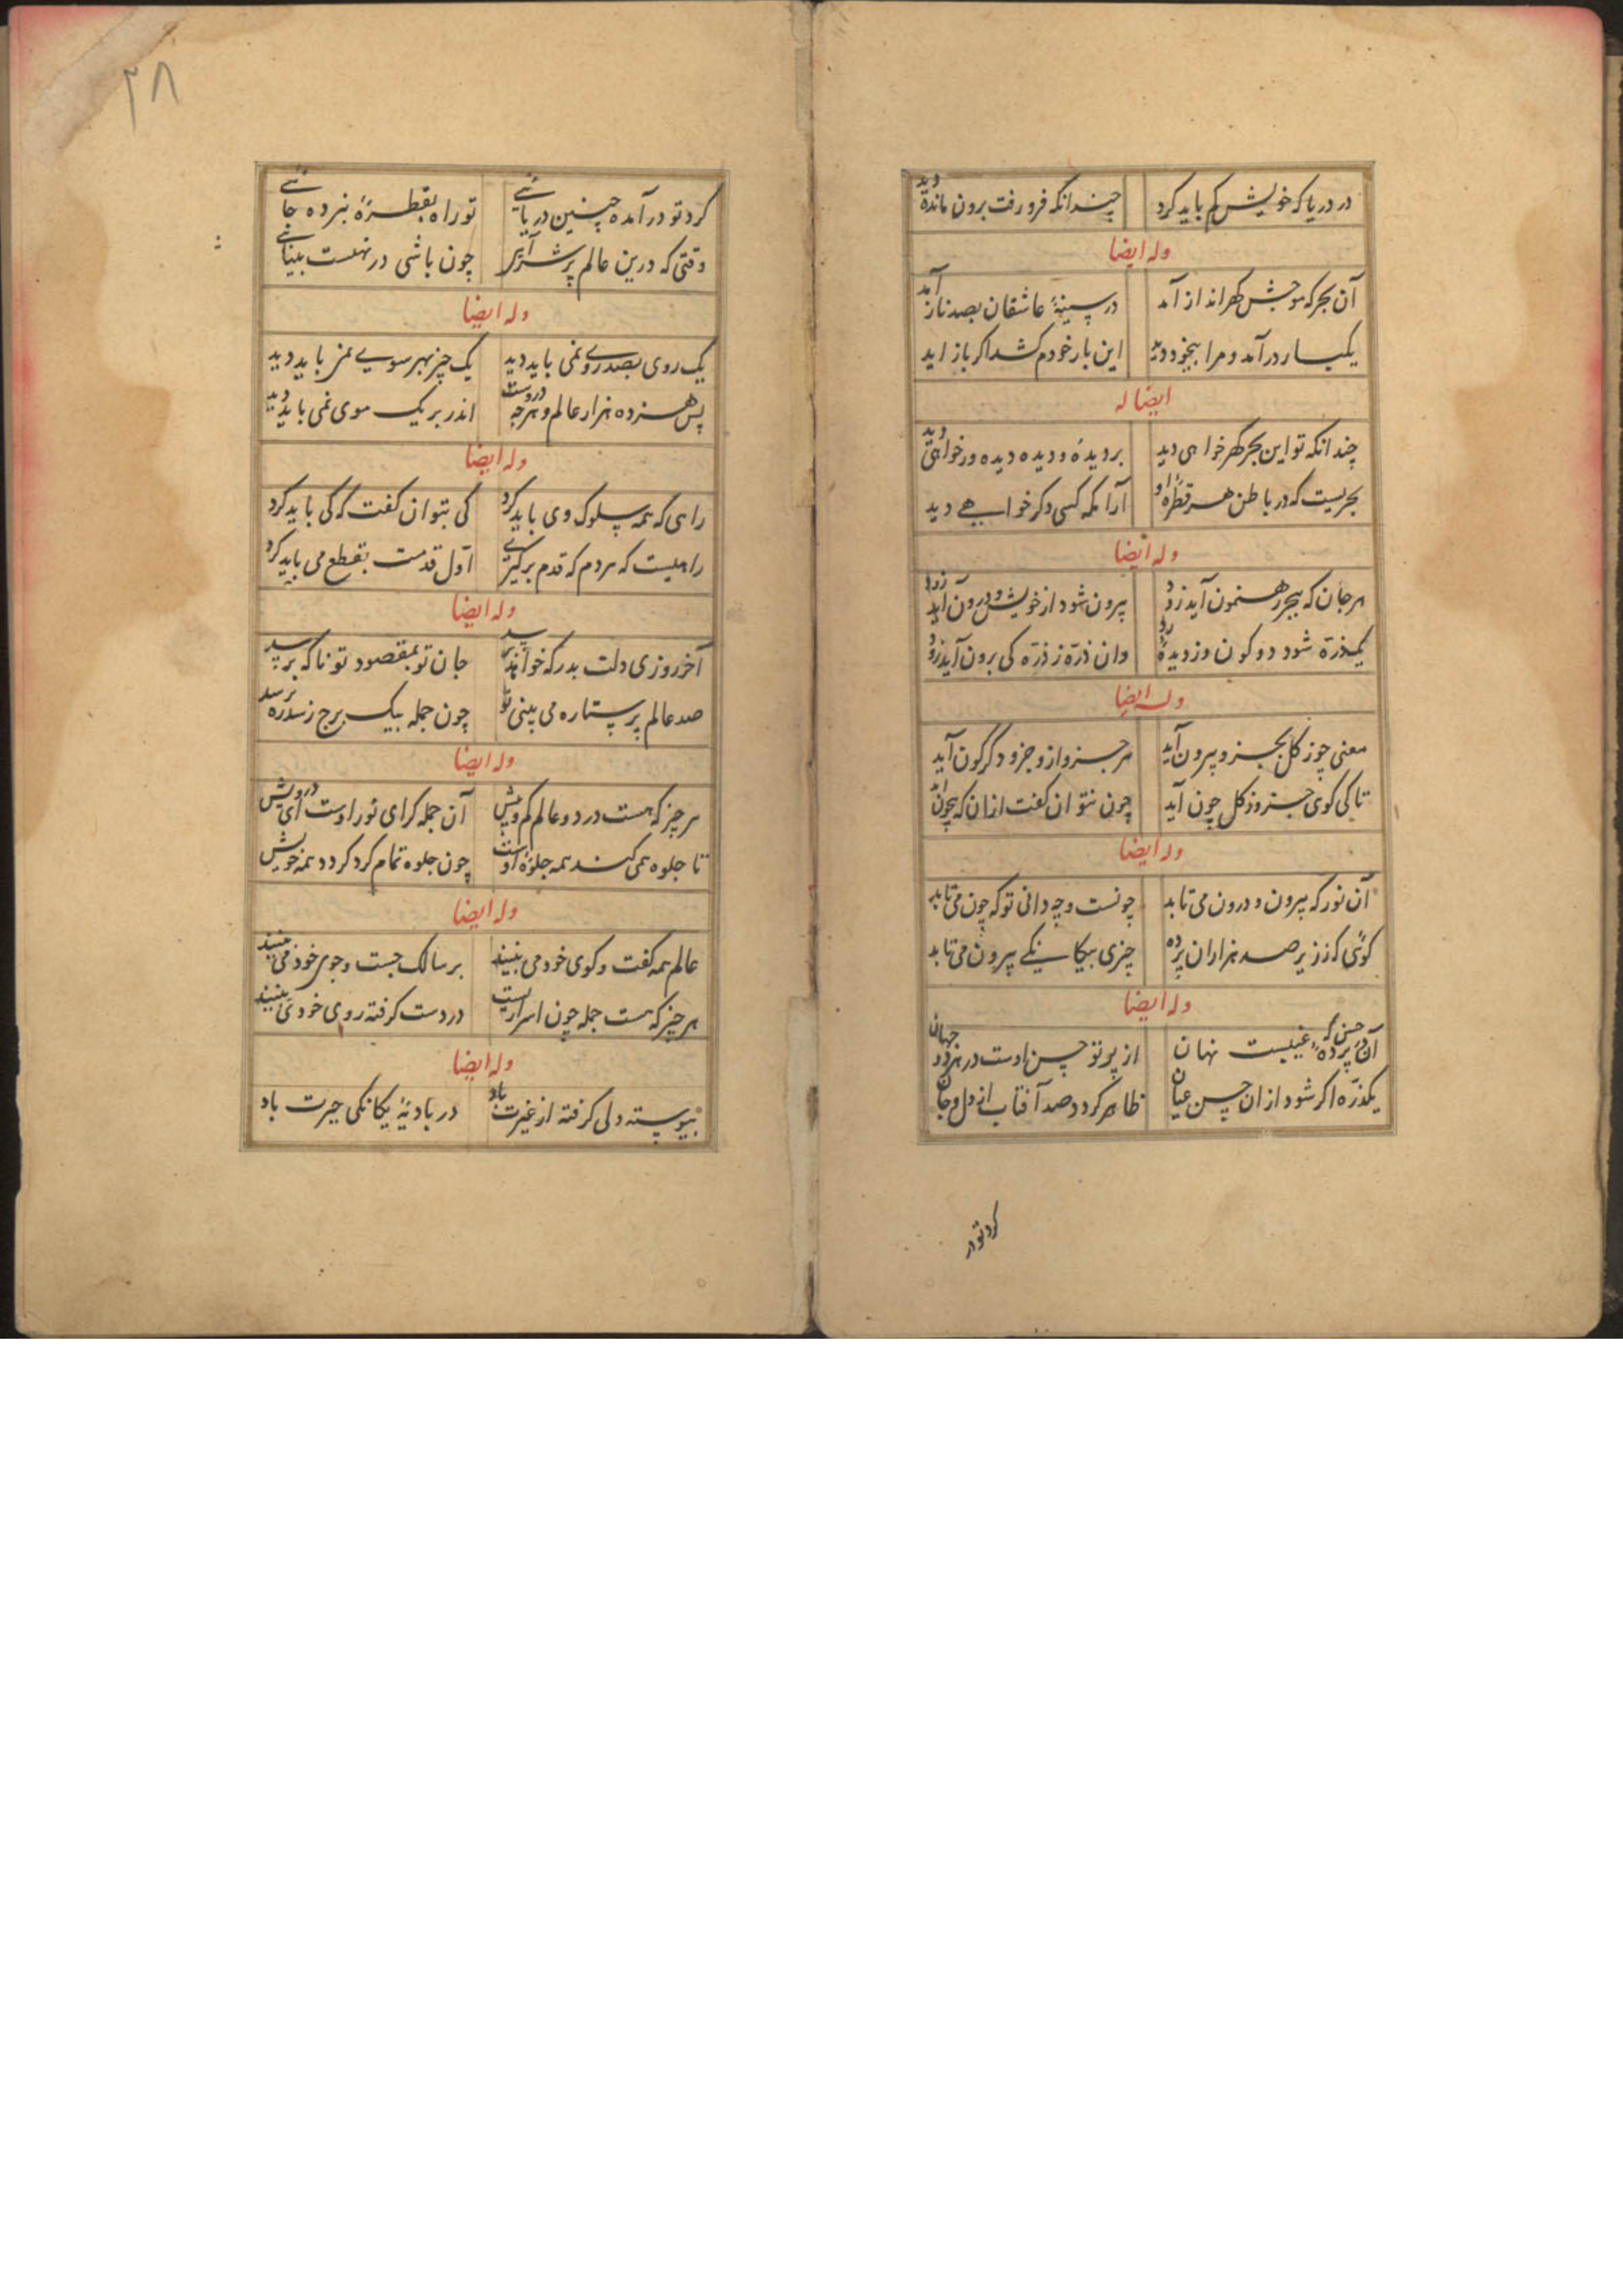 در دریا که خویش کم باید کرد چندانکه فرو رفت برون مانده دید
وله ایضا
آن بحر که موجش گهرانداز آمد در سینهٔ عاشقان بصد ناز آمد
یکبار درآمد و مرا بیخود دید این بار خودم کشد اکر باز اید
ایضا له
چندانکه تو این بحر کهر خواهی دید بر دیده و دیده دیده ور خواهی دید
بحریست که در باطن هر قطرهٔ او آرامکه کسی دکر خواهی دید
وله ایضا
هر جان که ببحر رهنمون آید زود بیرون شود از خویش و درون آید زود
یکذره شود دو کون وز دیدهٔ او وان ذره ز ذره کی برون آید زود
وله ایضا
معنی چو ز کل بجزو بیرون آید هر جزو ازو جزو دگرگون آید
تا کی کوی جزو ز کل چون آید چون نتوان کفت ازان که بیچون آید
وله ایضا
آن نور که بیرون و درون می تابد چونست و چه دانی تو که چون می تابد
کوئی که ز زیر صد هزاران پرده چیزی بیکاسینکی بیرون می تابد
وله ایضا
آن حسن که در پردهٔ غیبست نهان از پرتو حسن اوست در هر دو جهان
یکذره اکر شود ازان حسن عیان ظاهر کردد صد آفتاب از دل و جان
کرد تو در
۲۸
کرد تو درآمده چنین دریائی تو راه بقطرهٔ نبرده جائی
وقتی که درین عالم پر شر آیی چون باشی در نهست بینائی
وله ایضا
یک روی بصد روی نمی باید دید یک چیز بهر سویی نمی باید دید
پس هژده هزار عالم و هرچه دروست اندر بر یک موی نمی باید دید
وله ایضا
راهی که همه سلوک وی باید کرد کی بتوان کفت که کی باید کرد
راهیست که هر دم که قدم برگیری اول قدمت بقطع می باید کرد
وله ایضا
آخر روزی دلت بدرگه برسد جان تو بمقصود تو ناکه برسد
صد عالم پر ستاره می بینی تو چون جمله بیک برج رسد ره برسد
وله ایضا
هر چیز که هست در دو عالم کم و بیش آن جمله کرای نور اوست ای درویش
تا جلوه همی کند همه جلوهٔ اوست چون جلوه تمام کرد کردد همه خویش
وله ایضا
عالم همه کفت و کوی خود می بینند بر سالک جست و جوی خود می بینند
هر چیز که هست جمله چون اسراریست در دست کرفته روی خود می بینند
وله ایضا
پیوسته دلی کرفته از غیرت باد در بادیهٔ یکانکی حیرت باد